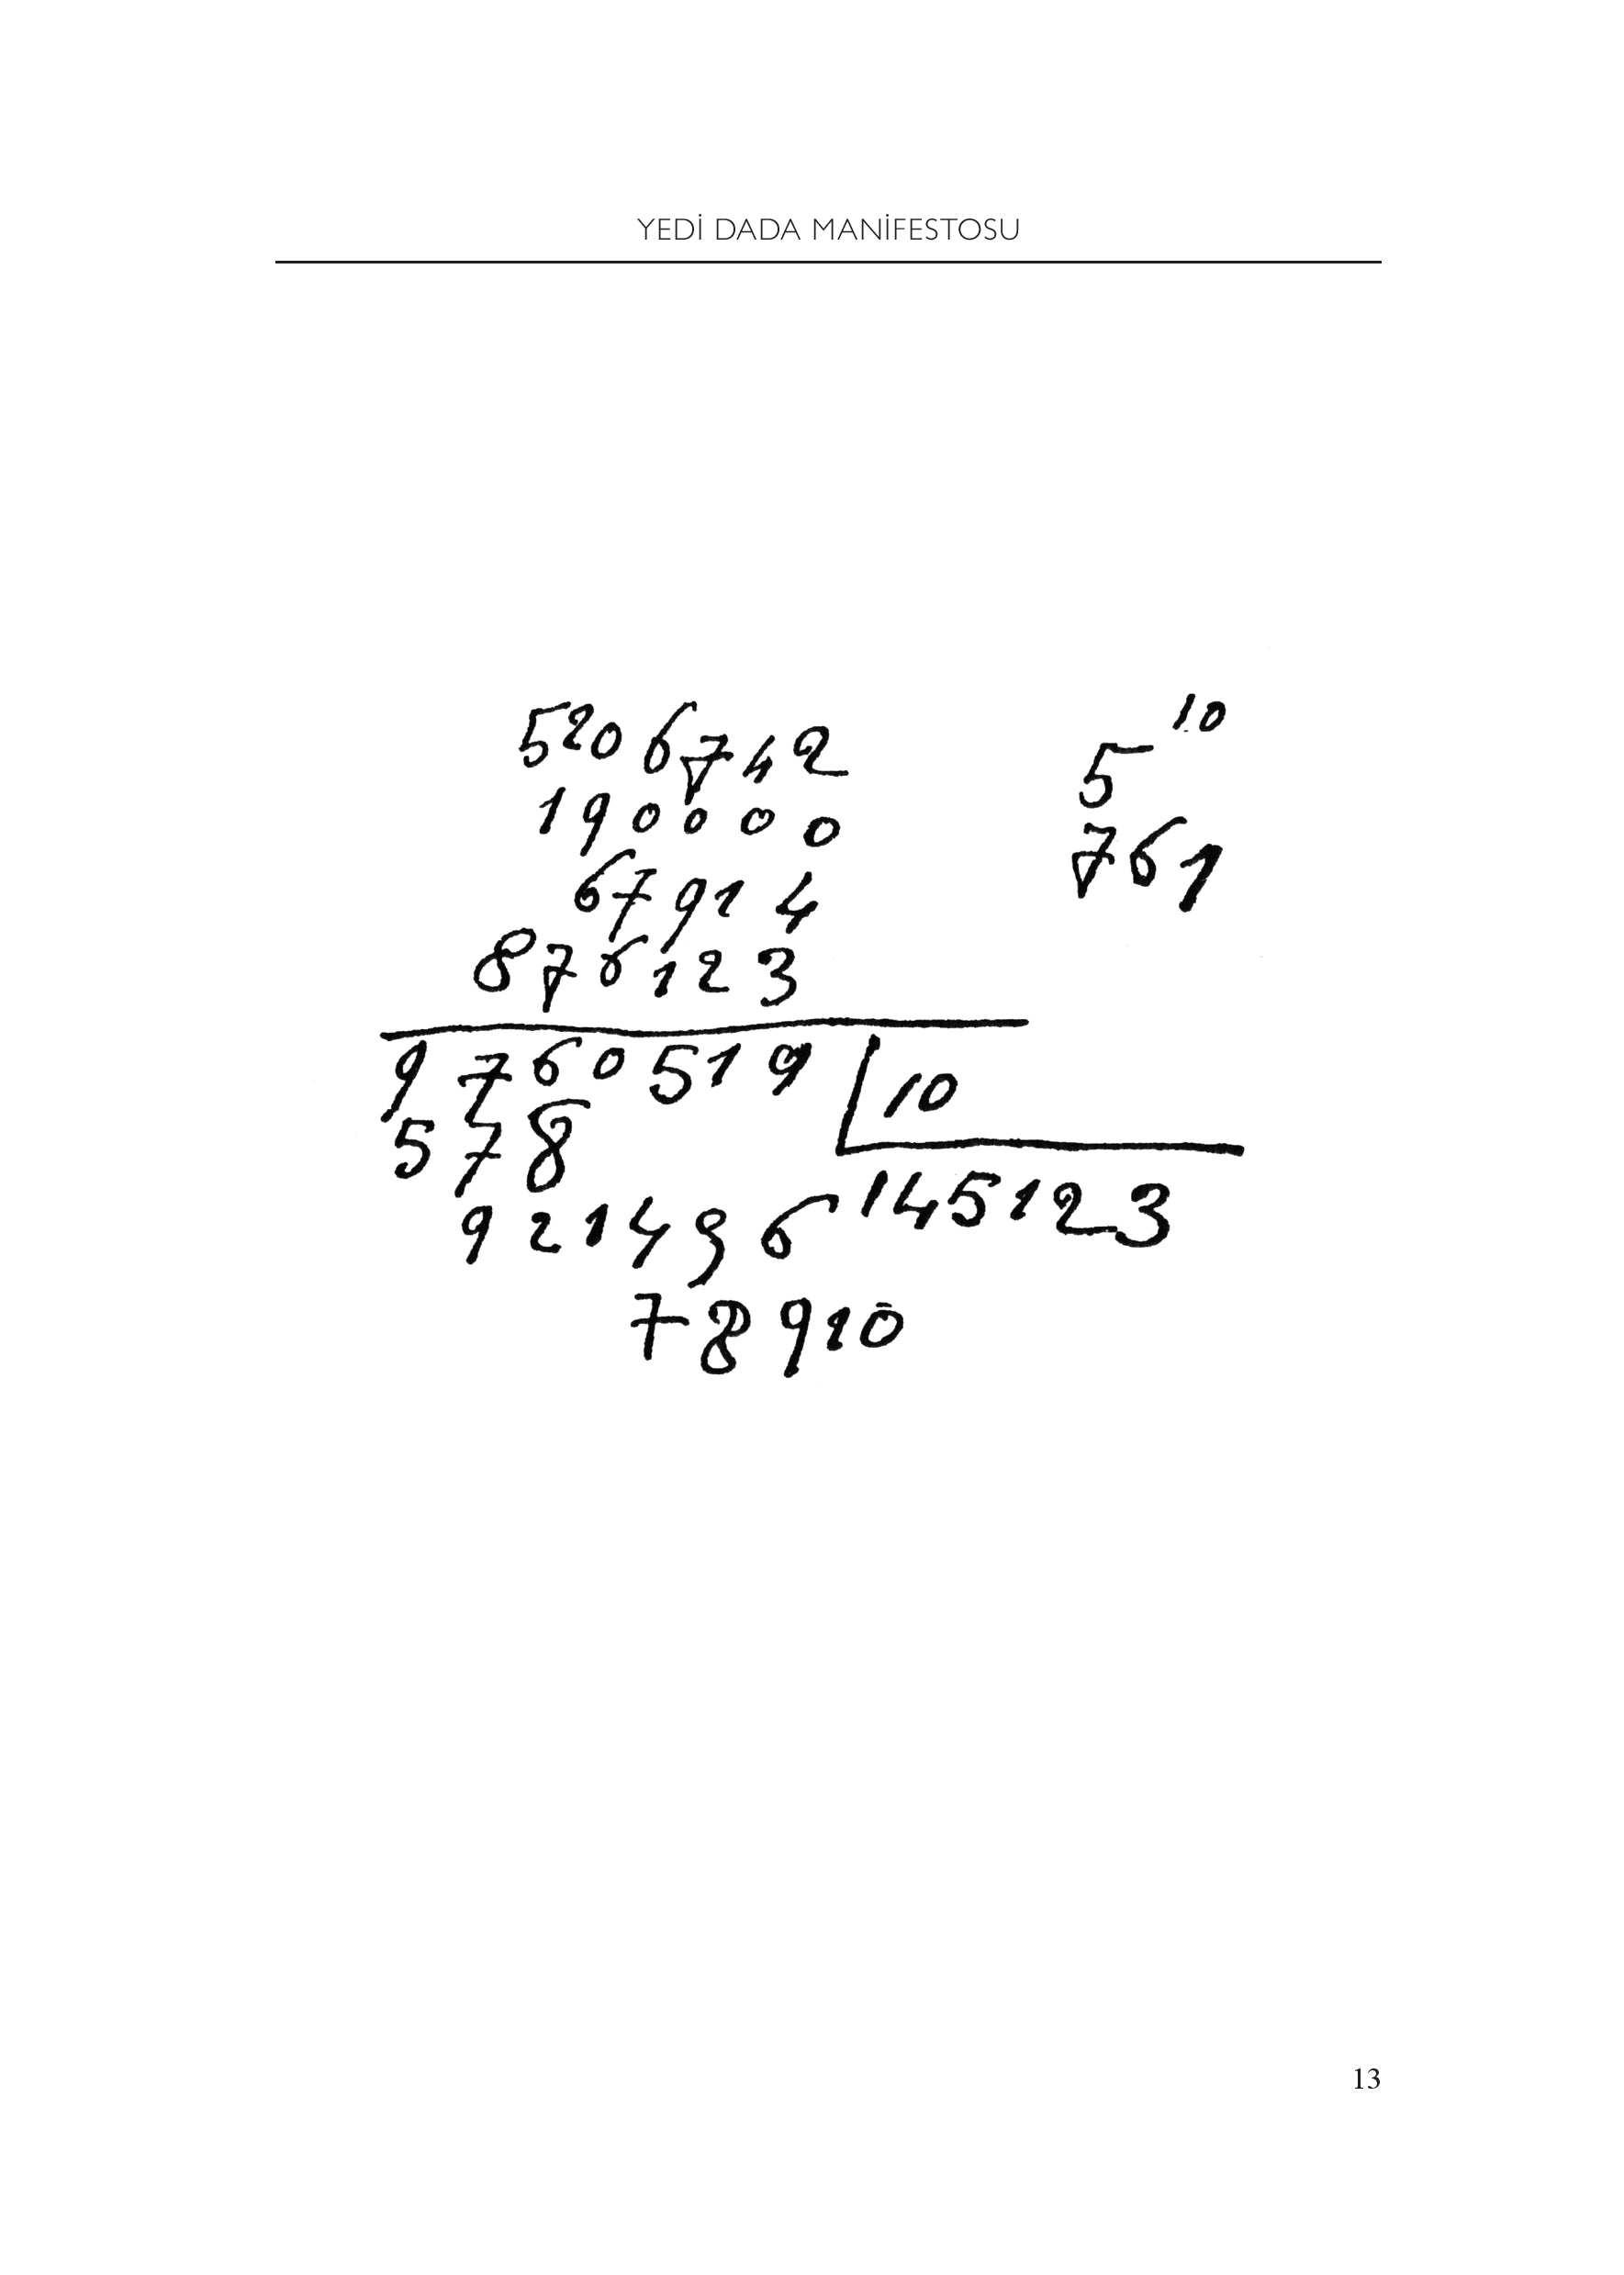 YEDİ DADA MANİFESTOSU
5206742
5 10
190000
761
67914
876123
9760519
10
578
145123
921496
78910
13